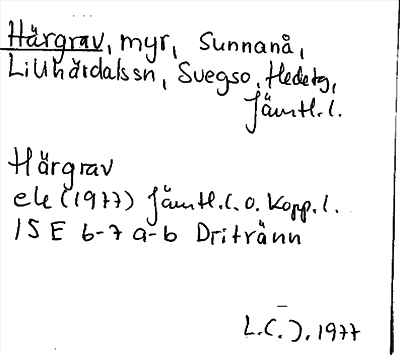 Härgrav, myr, Sunnanå,
Lillhärdalssn, Svegs o. Hedetg,
Jämtl.l.
Härgrav
ek (1977) Jämtl.l. o. Kopp.l.
15 E 6-7 a-b Dritränn
L.C.J. 1977